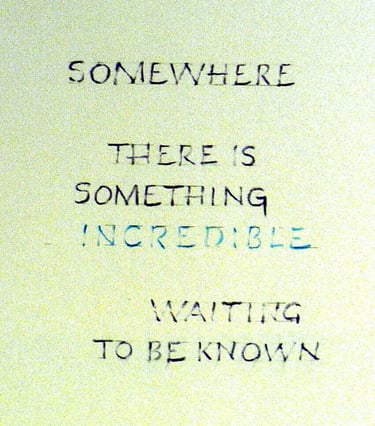 SOMEWHERE
THERE IS
SOMETHING
INCREDIBLE
WAITING
TO BE KNOWN